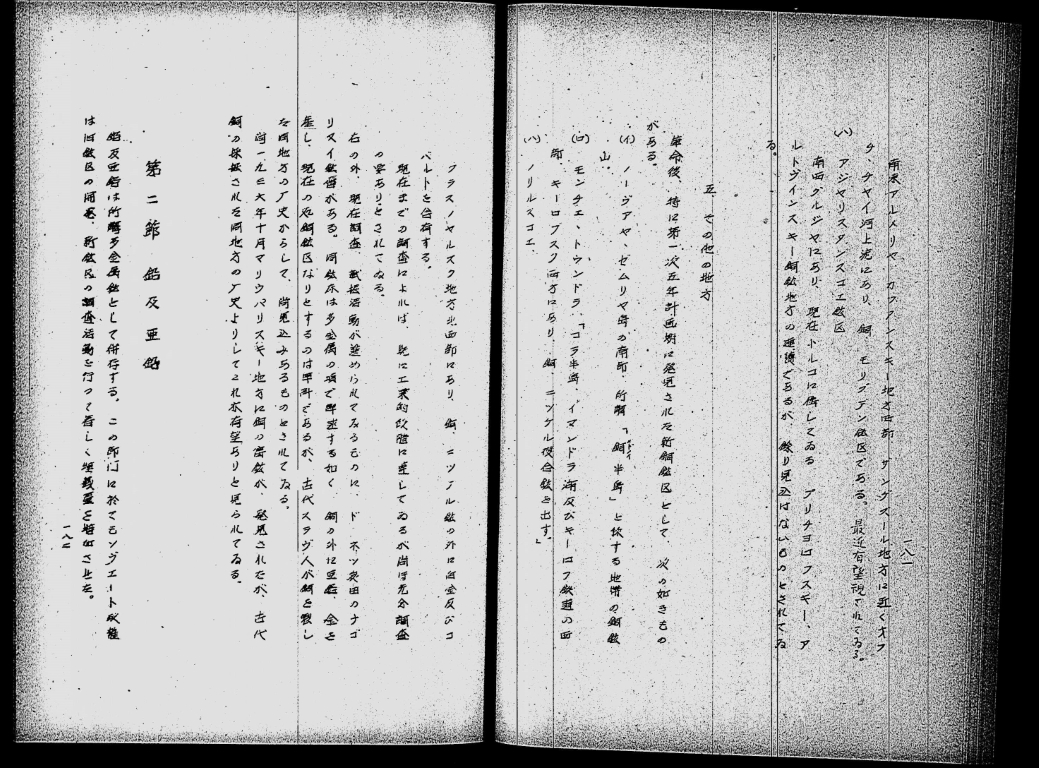 南東アルメリヤ カフアンスキー地方西部 ザングズール地方に近くオフ
チ、チヤイ河上流にあり、銅、モリブデン鉱区である。最近有望視されてゐる。
(ハ) アジヤリスタンスコエ鉱区
南西グルジヤにあり、現在トルコに属してゐる ブリチヨロフスキー、ア
ルトヴインスキー銅鉱地方の連続であるが、餘り見込はないものとされてゐ
る。
五 その他の地方
革命後、特に第一次五年計画期に発見された新銅鉱区として、次の如きもの
がある。
(イ) ノーヴアヤ・ゼムリヤ島の南部、所謂「銅半島」と称する地帯の銅鉱
山。
(ロ) モンチエ・トウンドラ、「コラ半島、イマンドラ湖及びキーロフ鉄道の西
部、キーロブスク西方にあり、銅 ニツケル複合鉱を出す。」
(ハ) ノリルスコエ、
一八一
クラスノヤルスク地方北西部にあり、銅、ニツケル鉱の外に白金及びコ
バルトを含有する。
現在までの調査によれば、既に工業的段階に達してゐるが尚ほ充分調査
の要ありとされてゐる。
右の外、現在調査、試掘活動が進められてゐるものに、ドネツ炭田のナゴ
リスイ鉱層がある。同鉱床は多金属の項で詳述する如く、銅の外に亜鉛、金を
産し、現在の処銅鉱区なりとするのは早計であるが、古代スラヴ人が銅を製し
た同地方の歴史からして、尚見込みあるものとされてゐる。
尚一九三六年十月マリウパリスキー地方に銅の富鉱が、発見されたが、古代
銅の採掘された同地方の歴史よりしてこれ亦有望ありと見られてゐる。
第二節 鉛及亜鉛
鉛及亜鉛は所謂多金属鉱として併存する。この部門に於てもソヴエート政権
は旧鉱区の開発、新鉱区の調査活動を行つて著しく埋蔵量を増加させた。
一八二